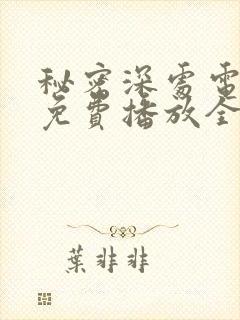 秘密深處電
免費播放全
葉非非